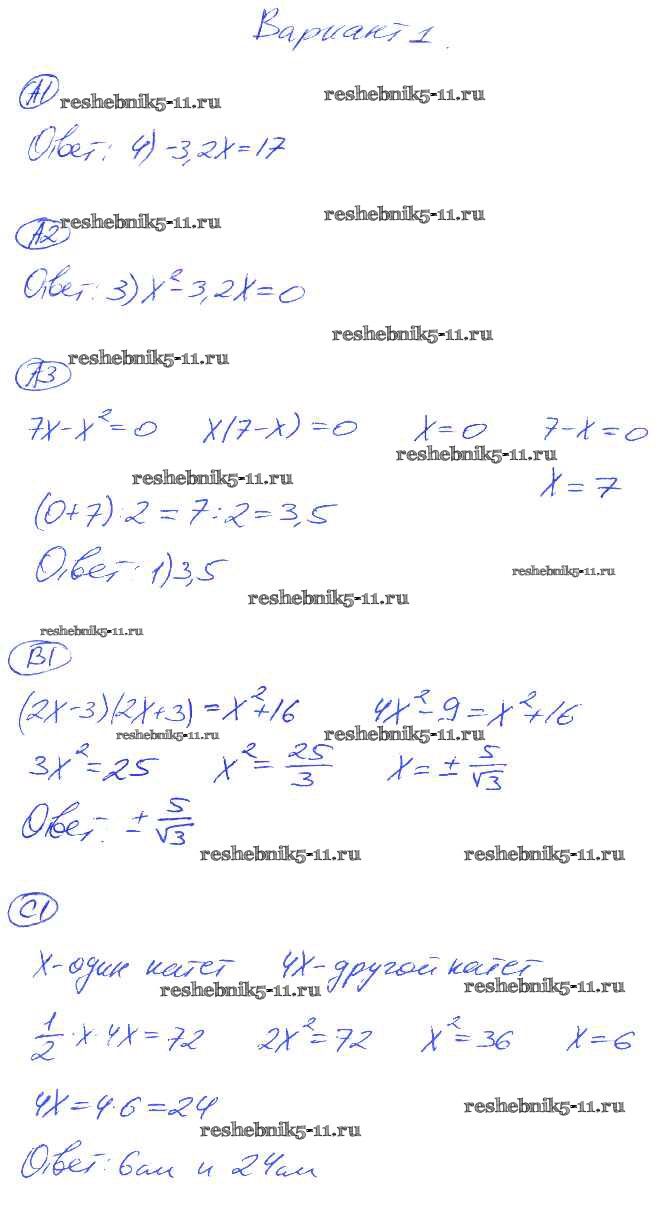 Вариант 1.
А1 reshebnik5-11.ru reshebnik5-11.ru
Ответ: 4) -3,2x=17
А2 reshebnik5-11.ru reshebnik5-11.ru
Ответ: 3) x²-3,2x=0
reshebnik5-11.ru
А3 reshebnik5-11.ru
7x-x²=0 x(7-x)=0 x=0 7-x=0
reshebnik5-11.ru
reshebnik5-11.ru x=7
(0+7):2=7:2=3,5
Ответ: 1) 3,5 reshebnik5-11.ru
reshebnik5-11.ru
reshebnik5-11.ru
В1
(2x-3)(2x+3)=x²+16 4x²-9=x²+16
reshebnik5-11.ru reshebnik5-11.ru
3x²=25 x²=25/3 x=±5/√3
Ответ: ±5/√3
reshebnik5-11.ru reshebnik5-11.ru
С1
x-один катет 4x-другой катет
reshebnik5-11.ru reshebnik5-11.ru
1/2·x·4x=72 2x²=72 x²=36 x=6
4x=4·6=24 reshebnik5-11.ru
reshebnik5-11.ru
Ответ: 6см и 24см